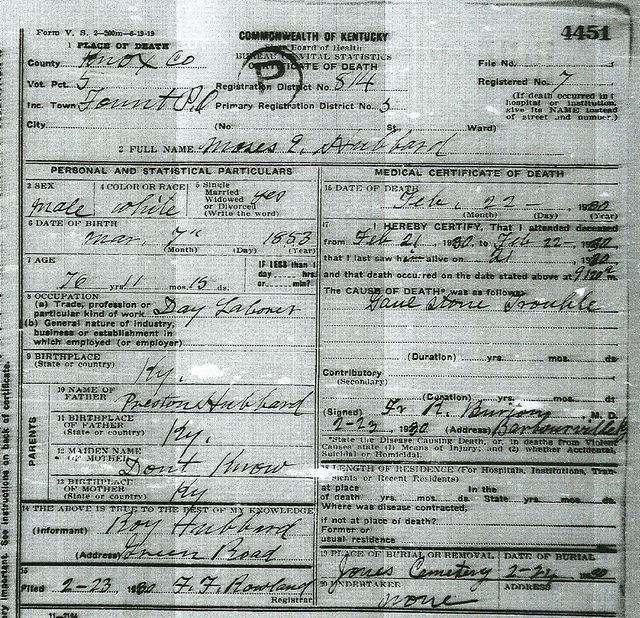 Form V. S. 2—200m—6-19-19
COMMONWEALTH OF KENTUCKY
State Board of Health
BUREAU OF VITAL STATISTICS
CERTIFICATE OF DEATH
4451
1 PLACE OF DEATH
County Knox Co
Vot. Pct. 5
Inc. Town
City
P
Registration District No. 814
Primary Registration District No. 3
(No. St. Ward)
File No.
Registered No. 7
(If death occurred in a
hospital or institution,
give its NAME instead
of street and number.)
2 FULL NAME Moses E. Hubbard
PERSONAL AND STATISTICAL PARTICULARS
3 SEX
male
4 COLOR OR RACE
white
5 Single
Married
Widowed
or Divorced
(Write the word)
yes
6 DATE OF BIRTH
Mar. 7" 1853
(Month) (Day) (Year)
7 AGE
76 yrs. 11 mos. 15 ds.
IF LESS than 1
day hrs.
or min?
8 OCCUPATION
(a) Trade, profession or
particular kind of work Day Laborer
(b) General nature of industry,
business or establishment in
which employed (or employer)
9 BIRTHPLACE
(State or country)
Ky.
PARENTS
10 NAME OF
FATHER
Preston Hubbard
11 BIRTHPLACE
OF FATHER
(State or country)
Ky.
12 MAIDEN NAME
OF MOTHER
Dont Know
13 BIRTHPLACE
OF MOTHER
(State or country)
Ky
14 THE ABOVE IS TRUE TO THE BEST OF MY KNOWLEDGE
(Informant) Roy Hubbard
(Address) Green Road
15
Filed 2-23 1930 F. F. Rowland
Registrar
MEDICAL CERTIFICATE OF DEATH
16 DATE OF DEATH
Feb. 22 — 1930
(Month) (Day) (Year)
17 I HEREBY CERTIFY, That I attended deceased
from Feb 21 1930 to Feb 22 — 1930
that I last saw h alive on 21 1930
and that death occurred on the date stated above at m.
The CAUSE OF DEATH* was as follows:
Gaul stone Trouble
(Duration) yrs. mos. ds.
Contributory
(Secondary)
(Duration) yrs. mos. ds.
(Signed) R. Burton, M. D.
2-23 1930 (Address) Barbourville Ky
*State the Disease Causing Death, or, in deaths from Violent
Causes state (1) Means of Injury; and (2) whether Accidental,
Suicidal or Homicidal.
18 LENGTH OF RESIDENCE (For Hospitals, Institutions, Transients
or Recent Residents)
at place In the
of death yrs. mos. ds. State yrs. mos. ds.
Where was disease contracted,
if not at place of death?
Former or
usual residence
19 PLACE OF BURIAL OR REMOVAL
Jones Cemetery
DATE OF BURIAL
2-24 1930
20 UNDERTAKER
none
ADDRESS
important. See instructions on back of certificate.
11—2184